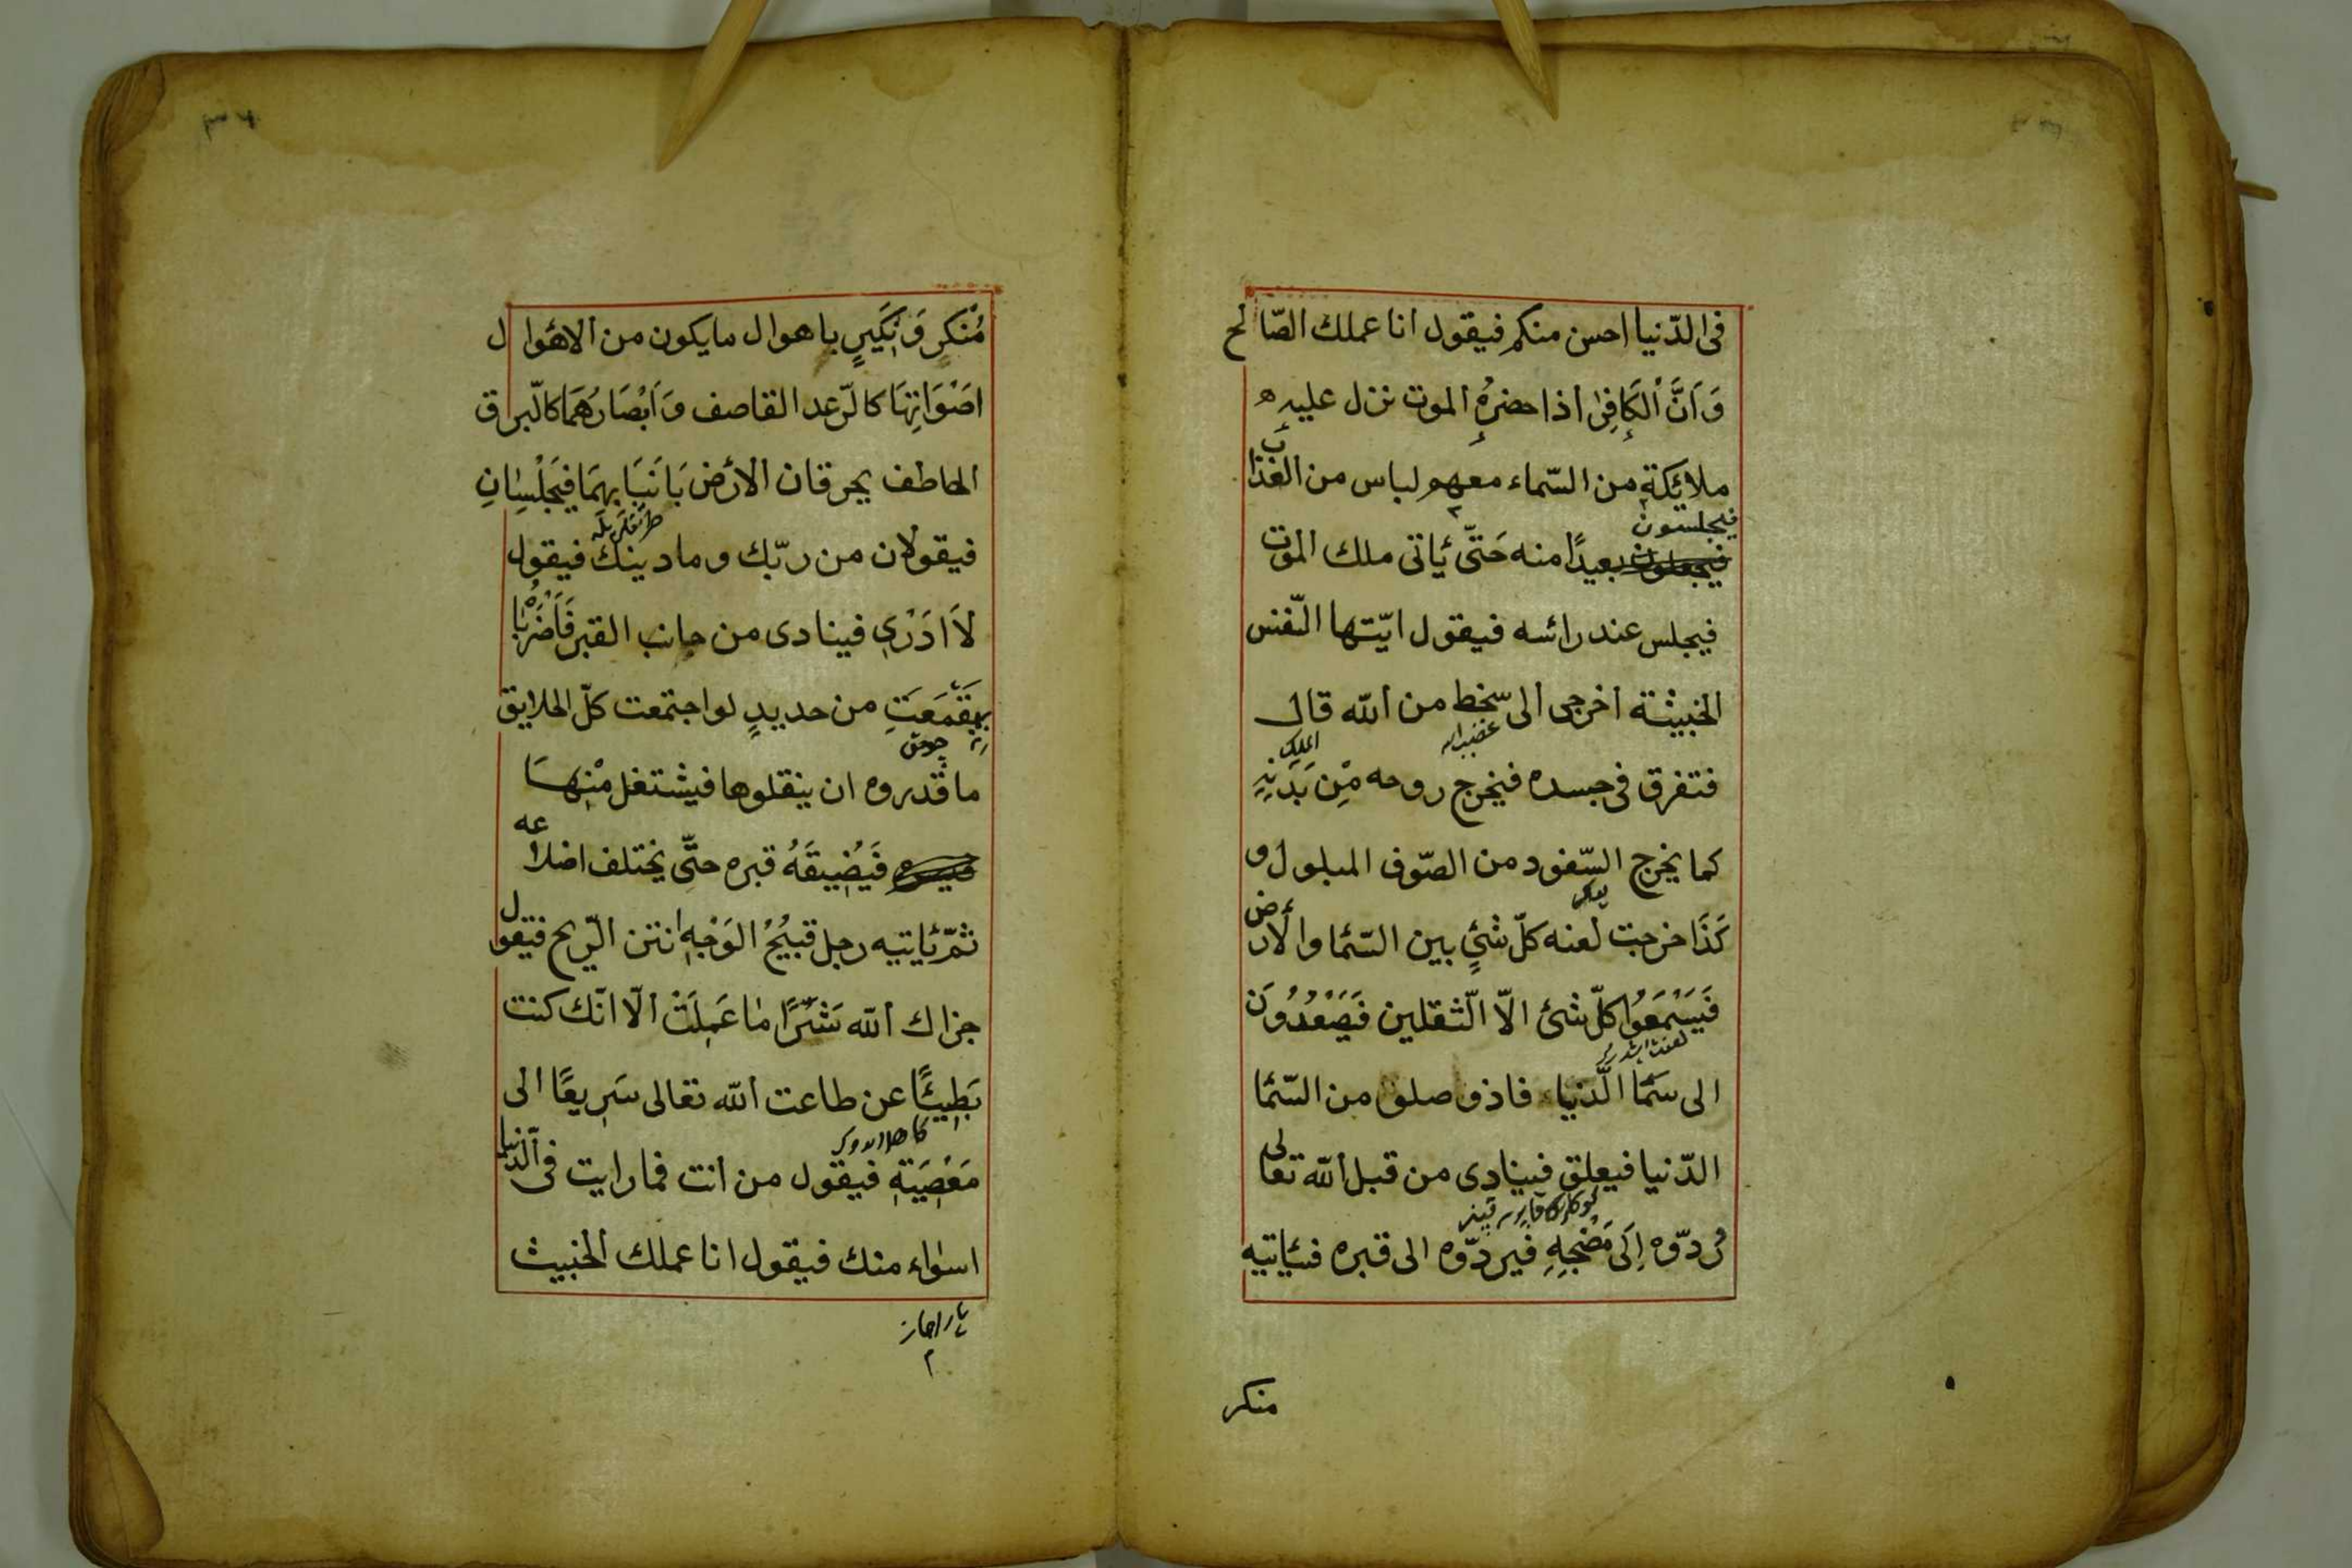 فى الدّنيا احسن منكم فيقول انا عملك الصّالح
وَاَنَّ الْكَافِرَ اذا حضرهُ الموت نزل عليه
ملائكة من السّماء معهم لباس من العذاب
فيجلسون
بعيدًا منه حَتّى ئاتى ملك الموت
فيجلس عند رائسه فيقول ايّتها النّفس
الخبيثة اخرجى الى سخط من الله قال
غضب الله
الملك
فتفرق فى جسده فيخرج روحه مِن بَدَنِهِ
كما يخرج السّفود من الصّوف المبلول و
كَذَا خرجت لعنه كلّ شئٍ بين السّما والأرض
فَيَسْمَعُوا كلّ شئ الّا الثّقلين فَيَصْعَدُونَ
الى سَمَا الدّنيا فاذو صلو من السّما
الدّنيا فيعلق فينادى من قبل الله تعالى
ردّوه اِلَى مَضْجِهِ فيردّوه الى قبره فئاتيه
منكر
مُنْكَرٍ وَنَكِيرٍ باهوال مايكون من الاهوال
اصْوَاتِهَا كالرّعد القاصف وَاَبْصَارُهمَا كالبرق
الخاطف يحرقان الأرض بَانيَابهِمَا فيَجْلِسَانِ
فيقولان من ربّك وما دينك فيقول
لَا ادْرِى فينادى من جانب القبر فَاَضْرُبَا
بِمِقْمَعَتٍ من حديدٍ لو اجتمعت كلّ الخلايق
چومق
ما قدروه ان ينقلوها فيشتغل مِنْهَا
فَيُضِيقَهُ قبره حتّى يختلف اضلاعه
ثمّ ئاتيه رجل قبيحُ الوَجْهِ انتن الرّيح فيقول
جزاك الله شَرًّا مَا عَمِلَتْ الّا انّك كنت
بَطِيئًا عن طاعت الله تعالى سَرِيعًا الى
مَعْصِيَةِ فيقول من انت فما رايت فى الدّنيا
اسواء منك فيقول انا عملك الخبيث